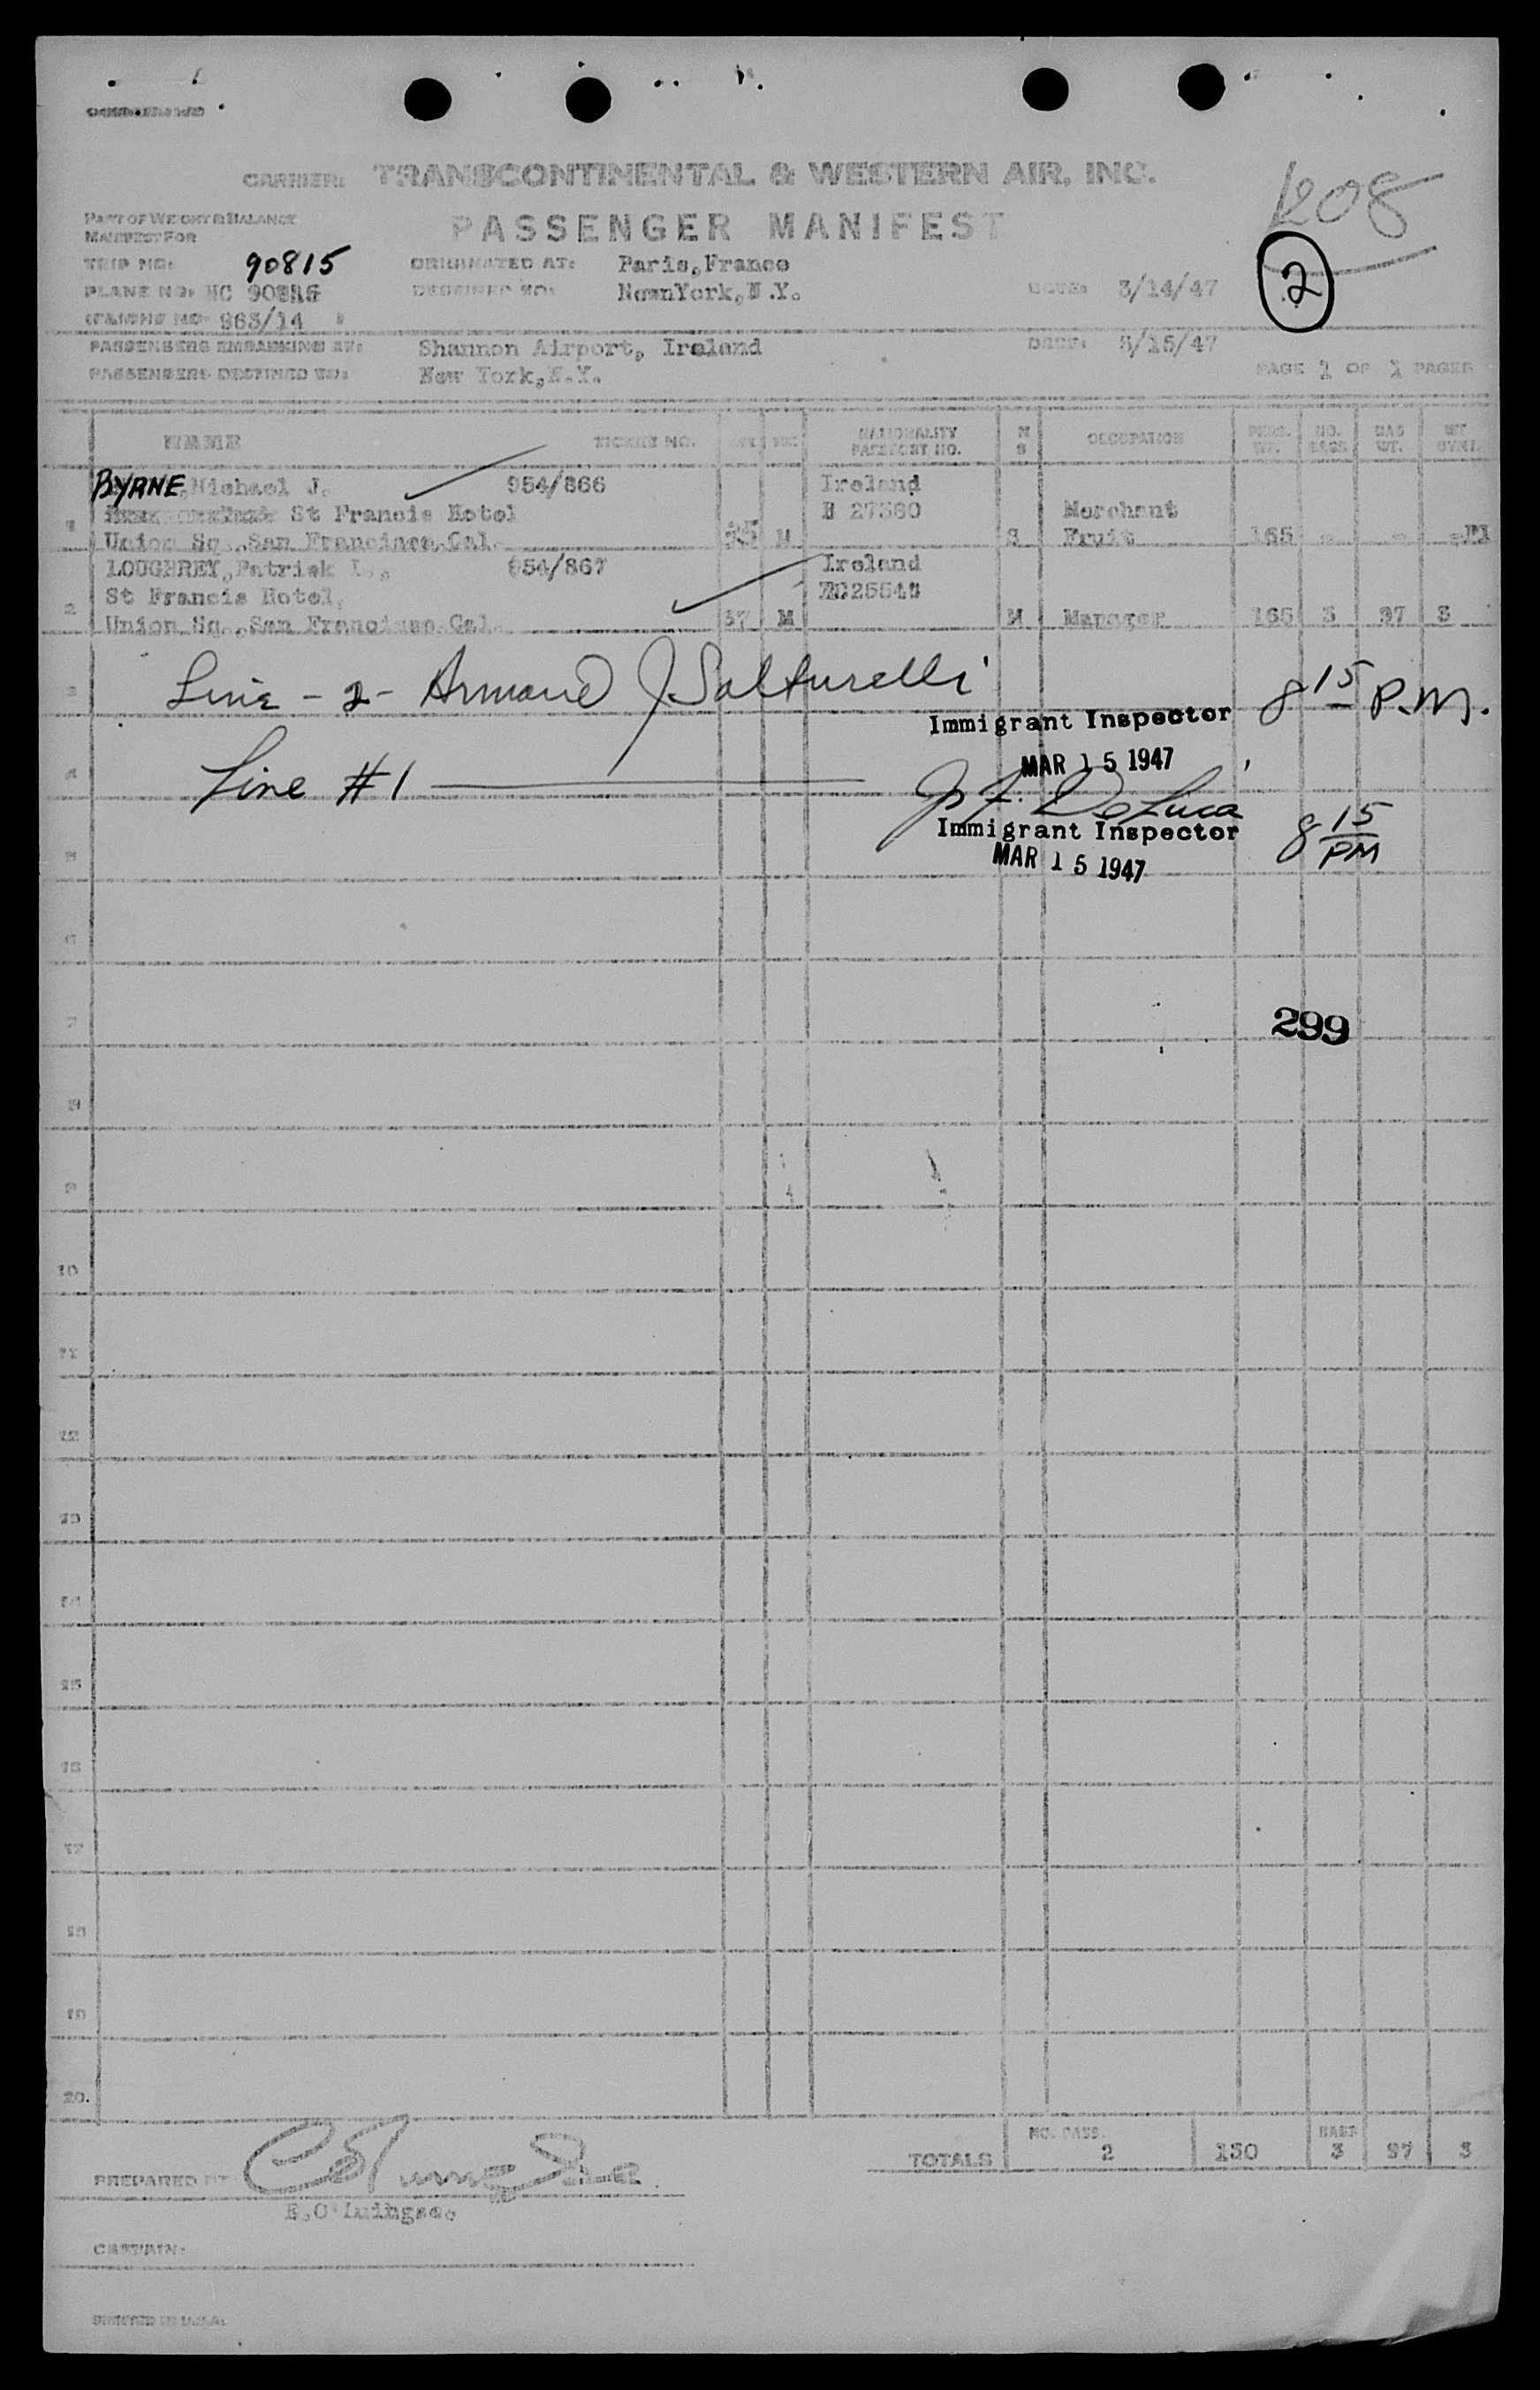 CARRIER: TRANSCONTINENTAL & WESTERN AIR, INC.
1208
PART OF WEIGHT & BALANCE
MANIFEST FOR
PASSENGER MANIFEST
2
TRIP NO: 90815
ORIGINATED AT: Paris,France
PLANE NO: NC
DESTINED TO: NewnYork,N.Y.
DATE: 3/14/47
963/14
PASSENGERS EMBARKING AT: Shannon Airport, Ireland
DATE: 3/15/47
PASSENGERS DESTINED TO: New York,N.Y.
PAGE 1 OF 1 PAGES
NAME TICKET NO. AGE SEX NATIONALITY PASSPORT NO. M S OCCUPATION PERS. WT. NO. BAGS BAG WT. WT
BYRNE,Michael J. 954/866 Ireland
St Francis Hotel Merchant
1 Union Sq.,San Francisco,Cal. M S Fruit 165 - -
LOUGHREY,Patrick 954/867 Ireland
St Francis Hotel,
2 Union Sq.,San Francisco,Cal. 37 M M Manager 165 3 97 3
3 Line - 2 - Armand J Salturelli
Immigrant Inspector 8 15 P.M.
MAR 15 1947
4 Line #1 J. F. DeLuca
Immigrant Inspector 8 15 PM
MAR 15 1947
5
6
7
299
8
9
10
11
12
13
14
15
16
17
18
19
20.
TOTALS NO. PASS. 2 BAGS 3 97 3
PREPARED BY
CAPTAIN:
PRINTED IN U.S.A.